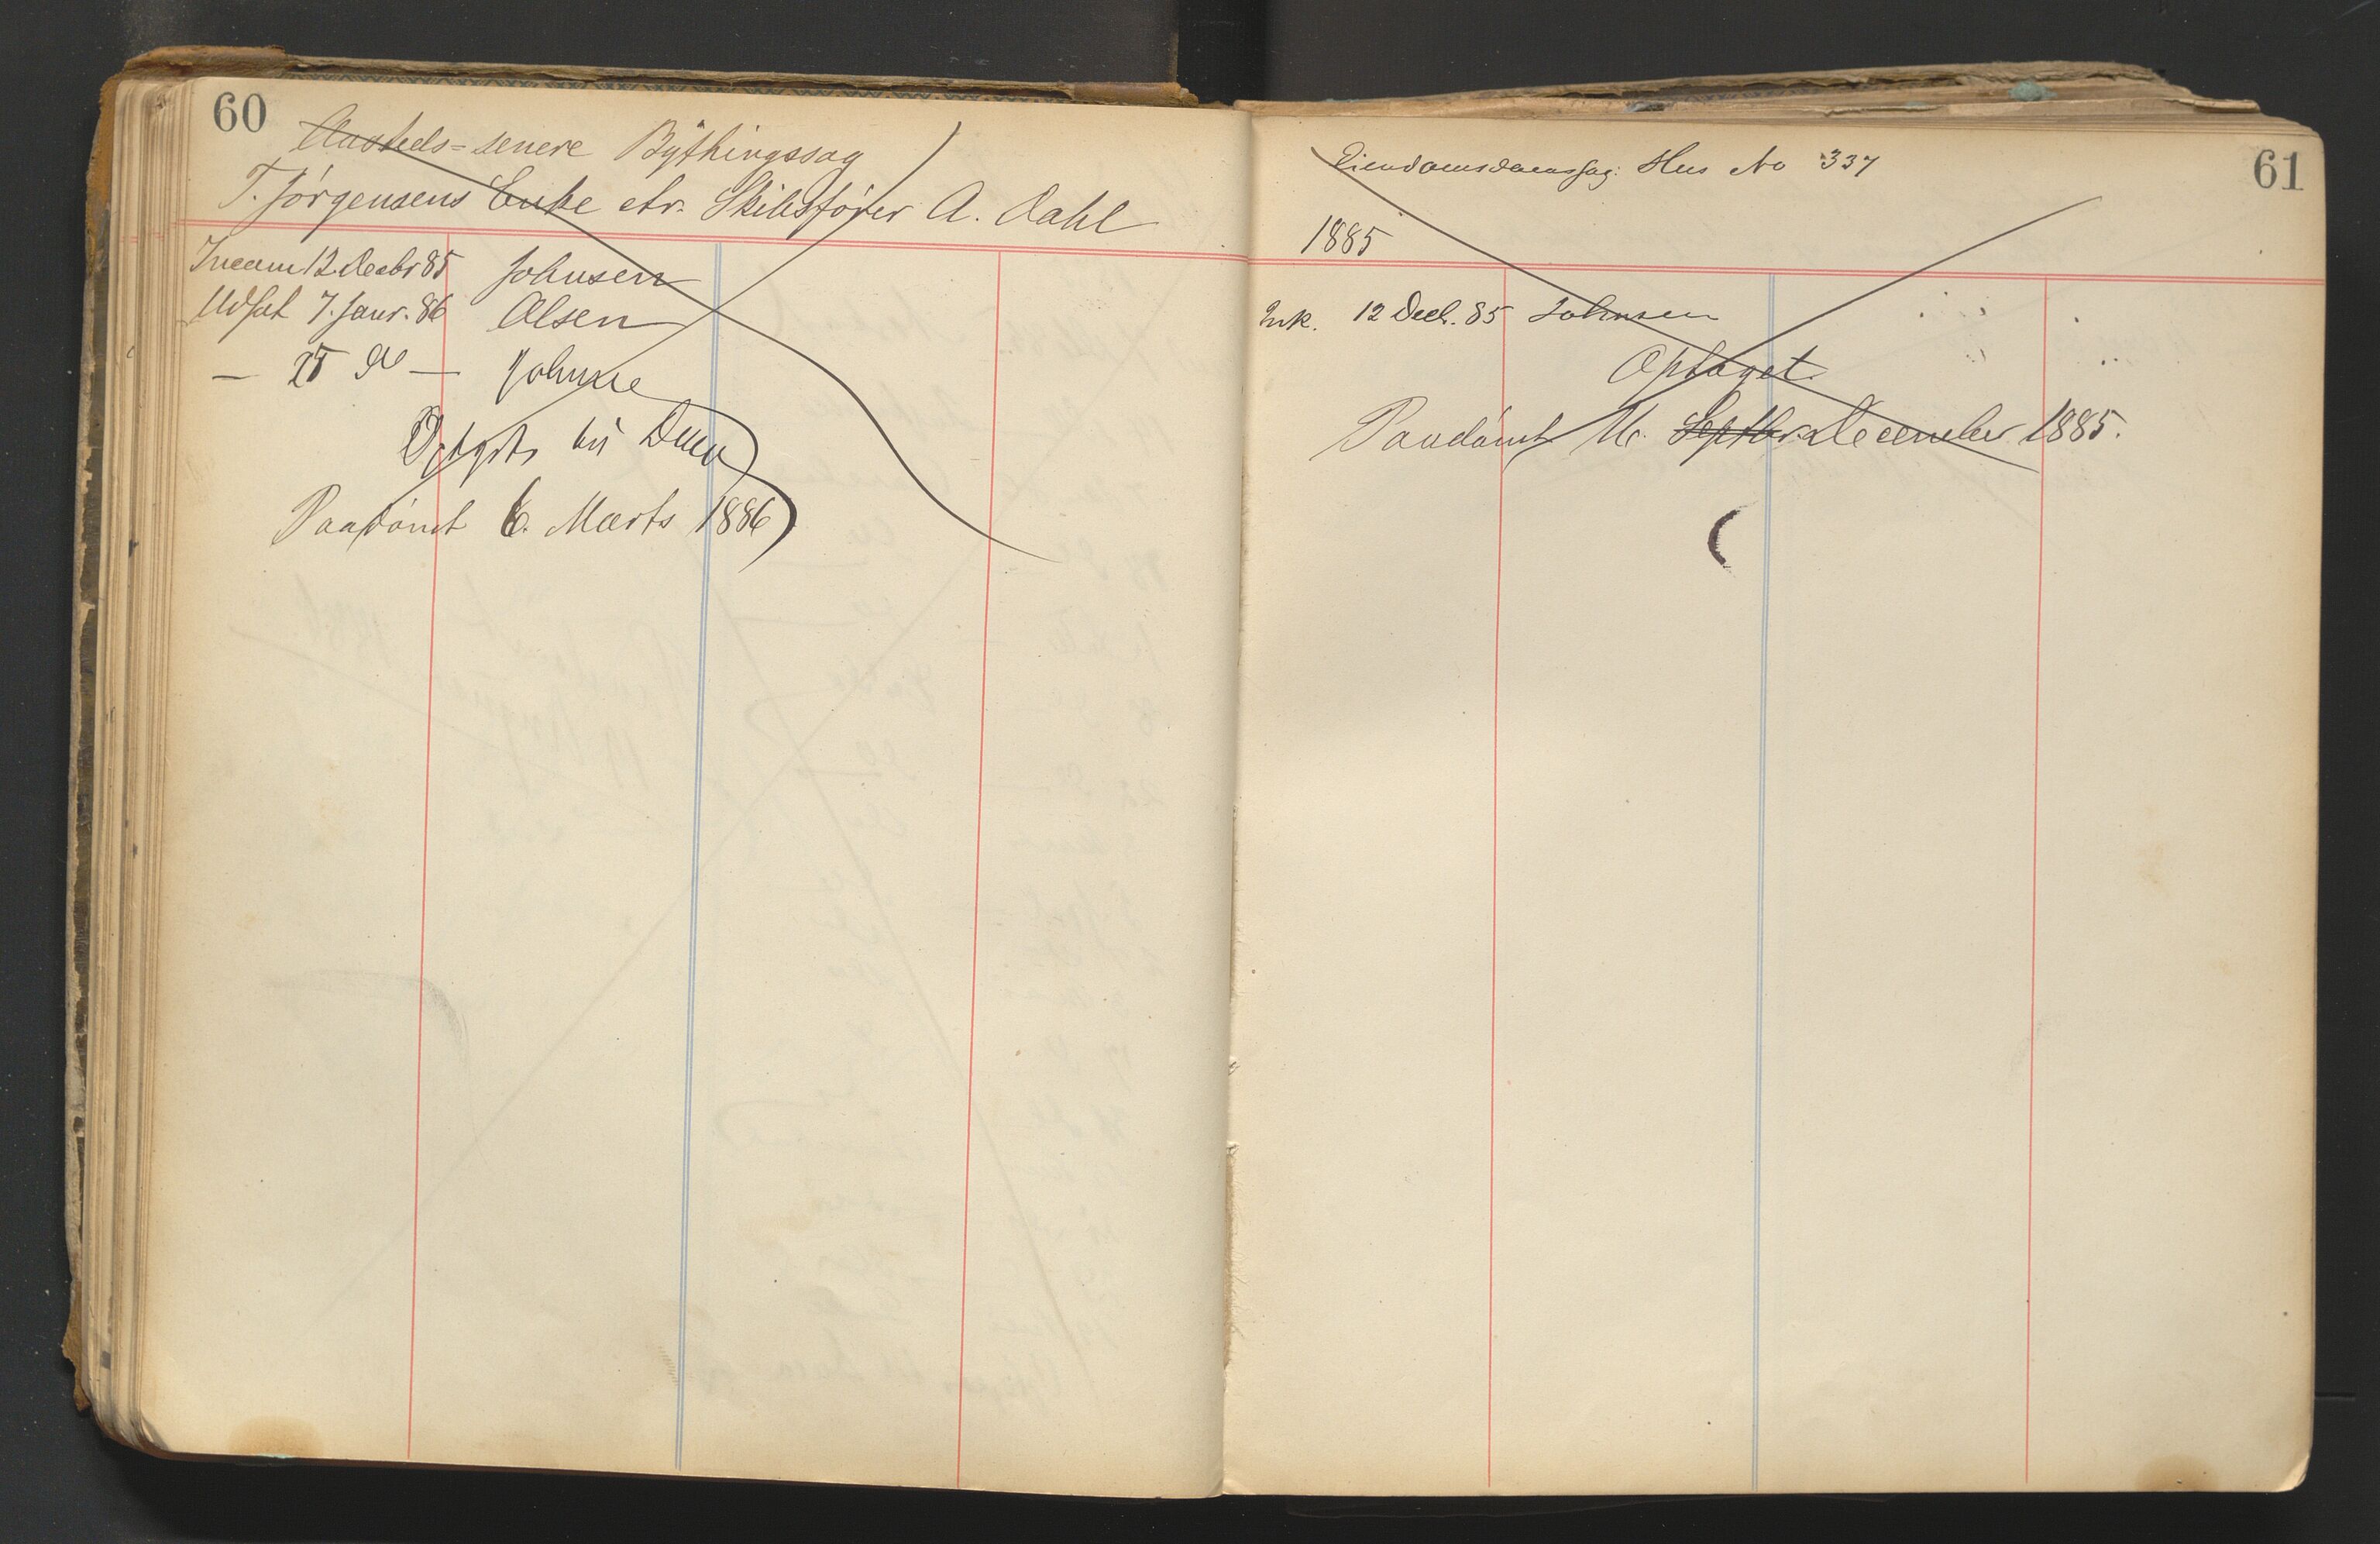 60
Aasteds= senere Bythingssag
T. Jørgensens Enke ctr. Skibsfører A. Dahl
Incam 12 Decbr 85 Johnsen
Udsat 7. Janr. 86 Olsen
— 25 do — Johnse
Optgts til Dom
Paadömt 6. Marts 1886
61
Eiendomsdomssag: Hus No 337
1885
Ink. 12 Decb. 85 Johnsen
Optaget.
Paadömt 16. Septbr. December 1885.